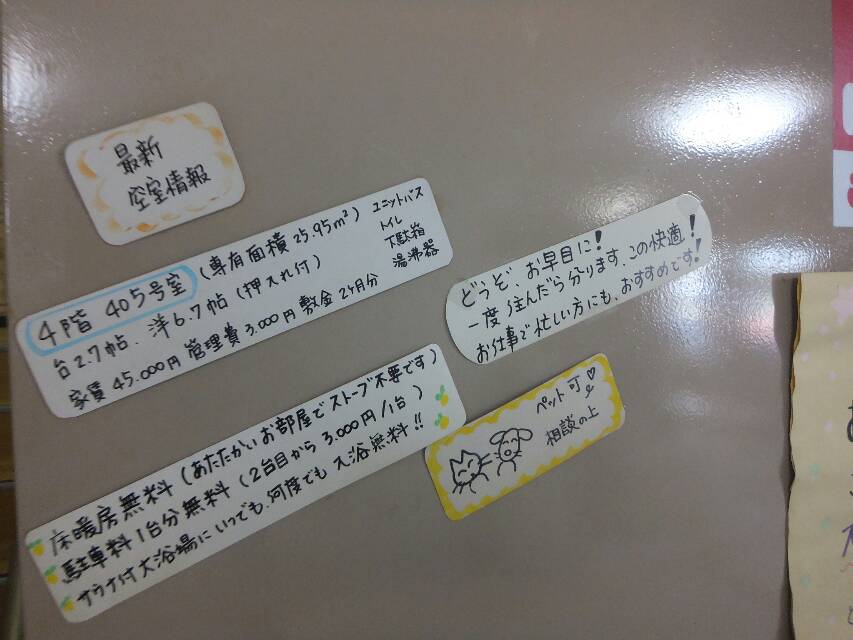 最新
空室情報
4階 405号室 (専有面積 25.95m²)
台2.7帖. 洋6.7帖 (押入れ付)
家賃 45.000円 管理費 3.000円 敷金 2ヶ月分
ユニットバス
トイレ
下駄箱
湯沸器
どうぞ、お早目に!
一度 住んだら分ります、この快適!
お仕事で忙しい方にも、おすすめです!
床暖房無料 (あたたかいお部屋でストーブ不要です)
駐車料1台分無料 (2台目から 3.000円/1台)
サウナ付大浴場にいつでも、何度でも 入浴無料!!
ペット可♡
相談の上